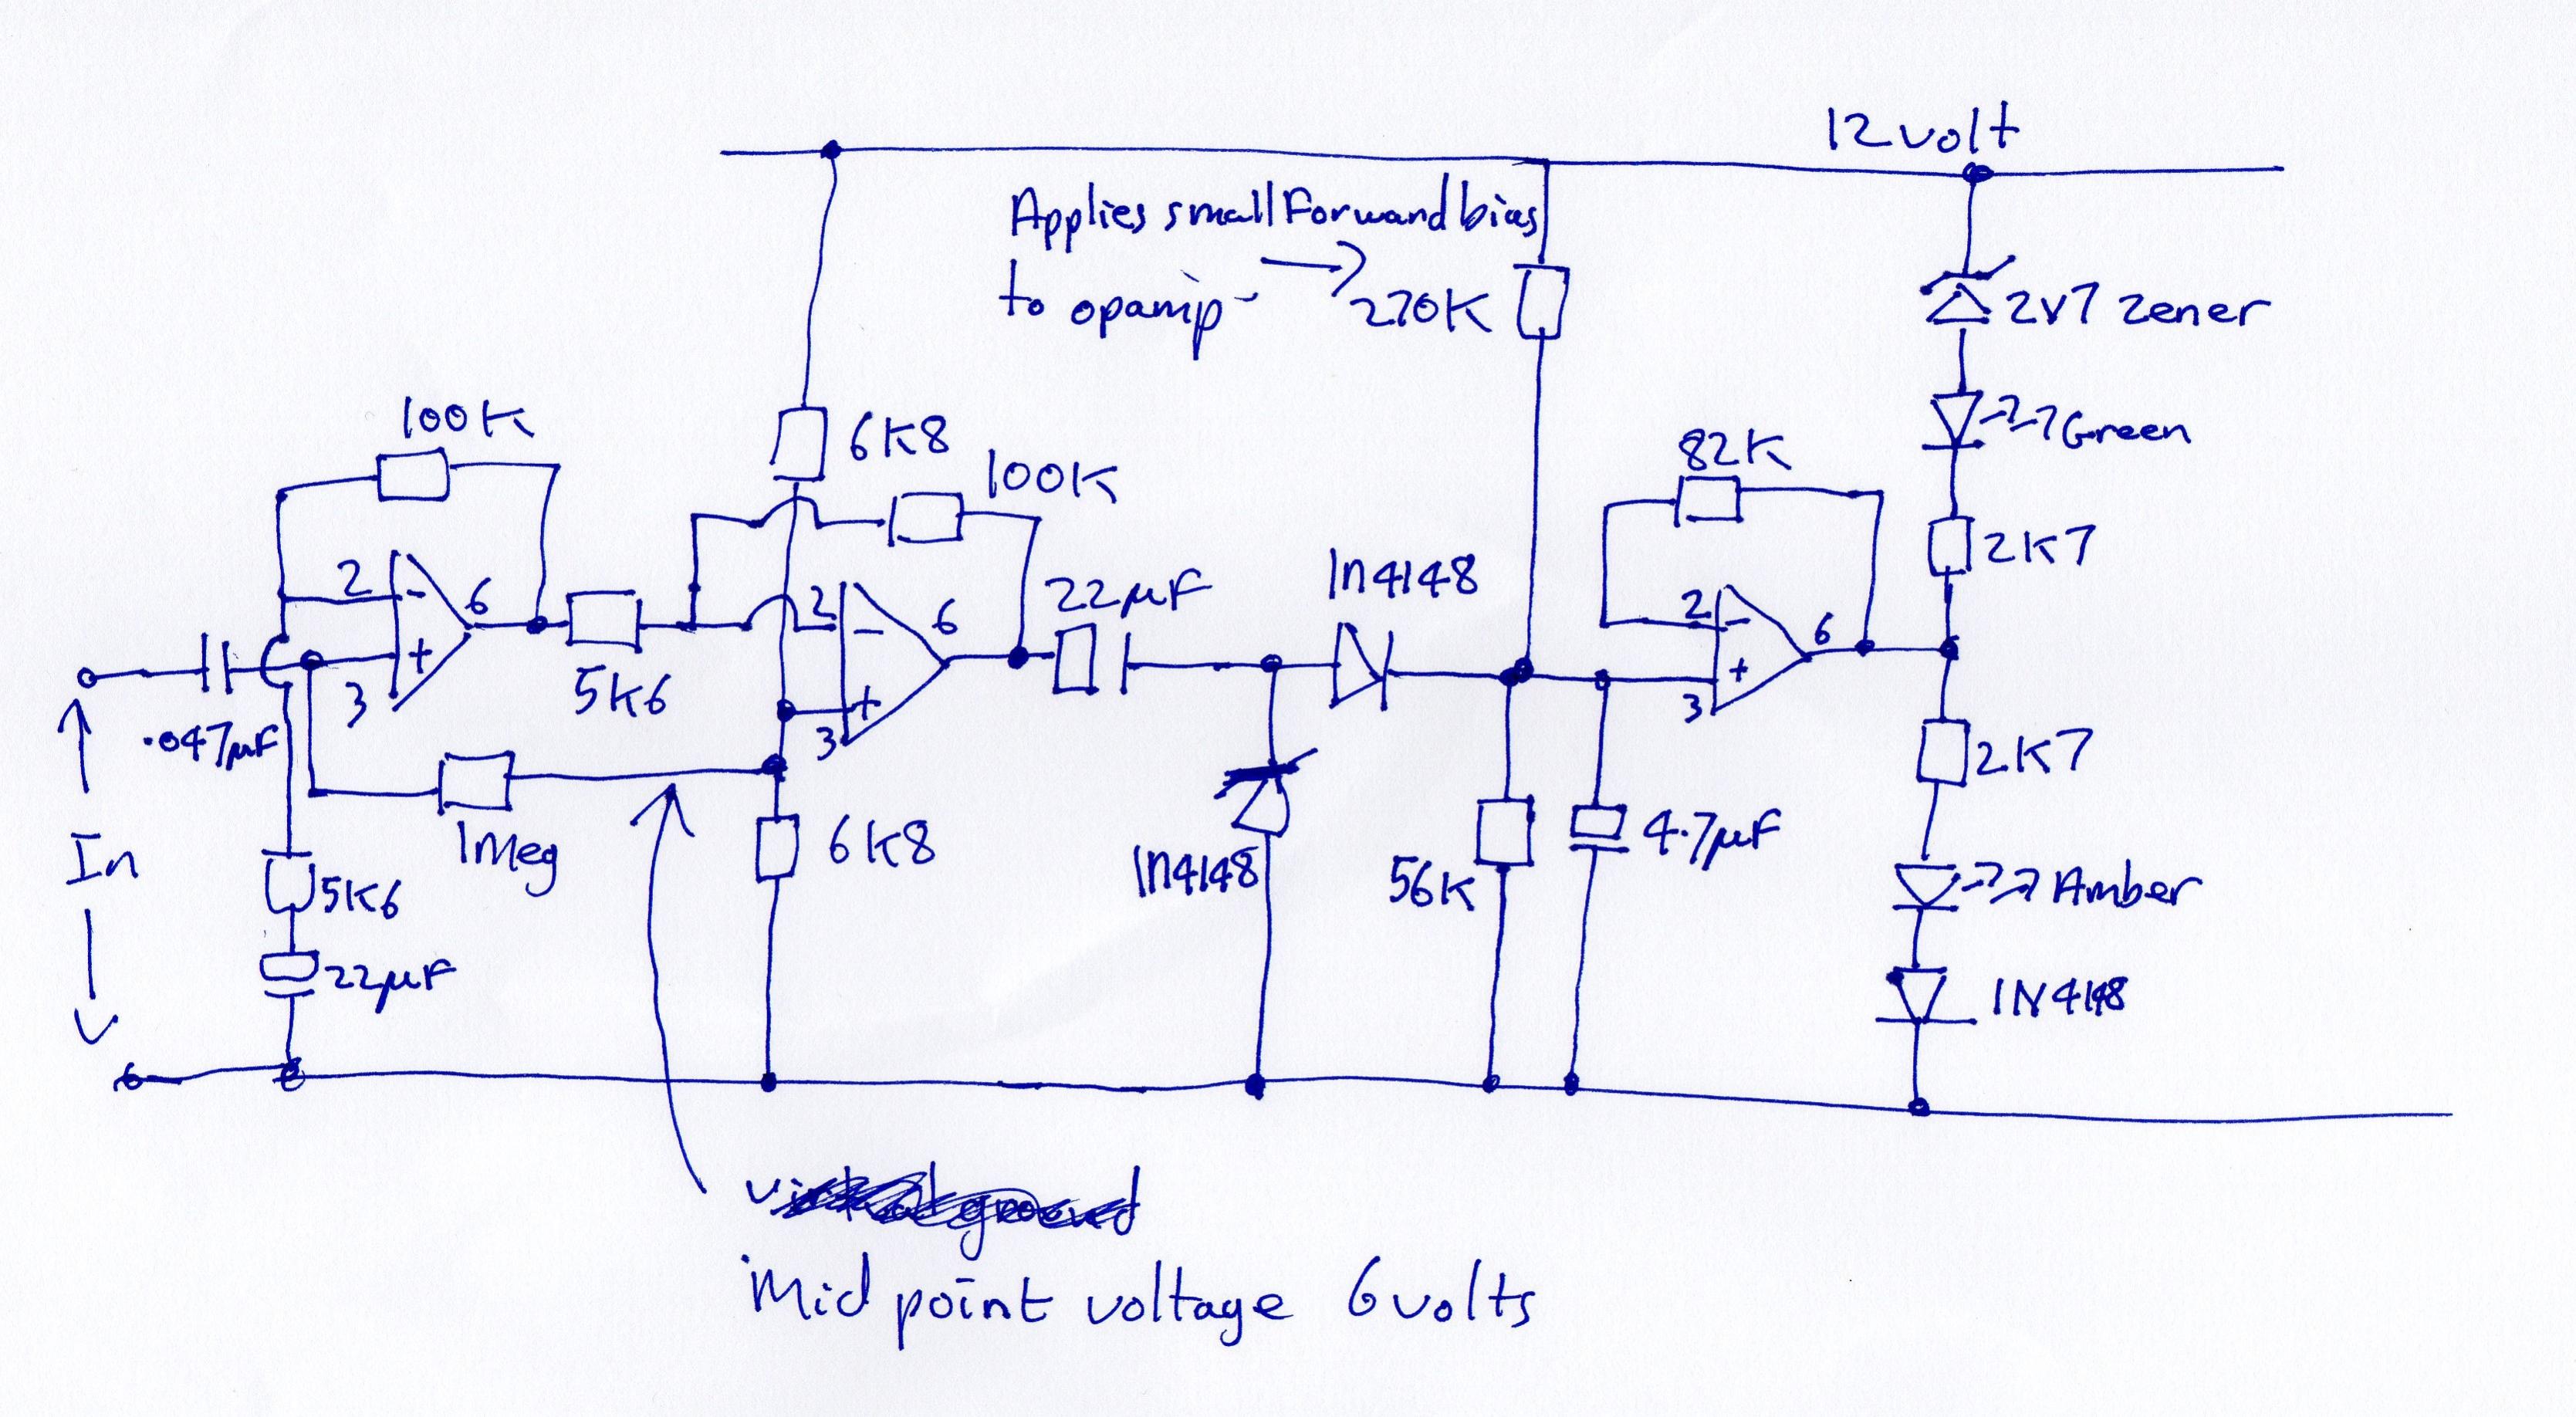 12 volt
Applies small Forward bias
to opamp
270K
2V7 Zener
Green
100K
6K8
100K
82K
2K7
2
-
6
+
3
5K6
2
-
6
+
3
22µF
1n4148
2
-
6
+
3
.047µF
1Meg
6K8
1n4148
56K
4.7µF
2K7
In
5K6
Amber
22µF
1N4148
Mid point voltage 6 volts